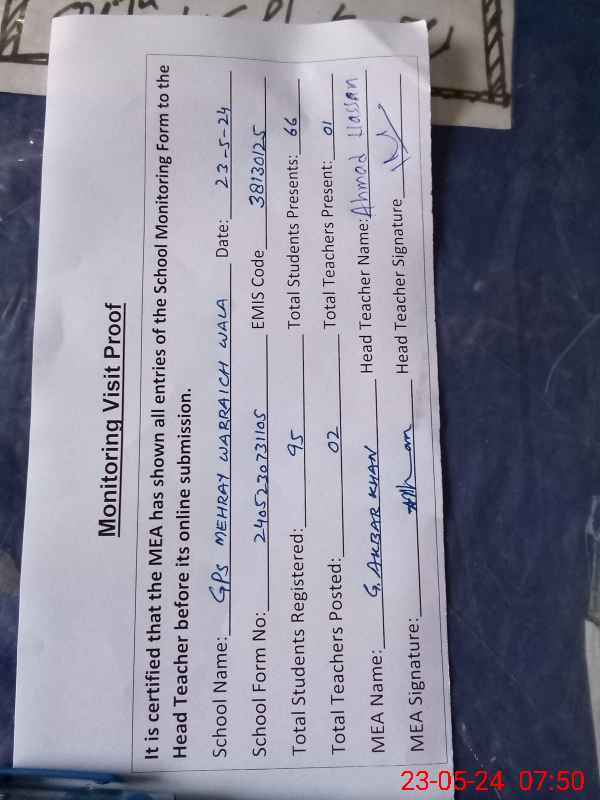 Monitoring Visit Proof
It is certified that the MEA has shown all entries of the School Monitoring Form to the
Head Teacher before its online submission.
School Name: GPS MEHRAY WARRAICH WALA Date: 23-5-24
School Form No: 2405230731105 EMIS Code 38130125
Total Students Registered: 95 Total Students Presents: 66
Total Teachers Posted: 02 Total Teachers Present: 01
MEA Name: G. AKBAR KHAN Head Teacher Name: Ahmad Hassan
MEA Signature: Head Teacher Signature
23-05-24 07:50